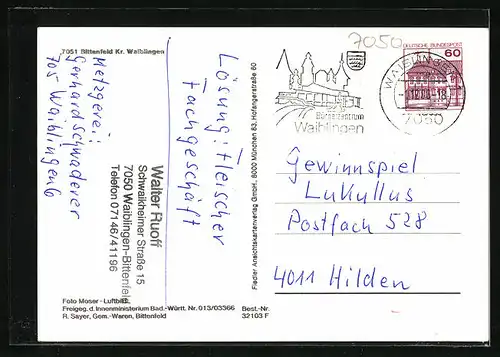 7051 Bittenfeld Kr. Waiblingen
Metzgerei:
Gerhard Schwaderer
705 Waiblingen 6
Walter Ruoff
Schwaikheimer Straße 15
7050 Waiblingen-Bittenfeld
Telefon 07146/41196
Lösung: Fleischer
Fachgeschäft
Foto Moser - Luftbild.
Freigeg. d. Innenministerium Bad.-Württ. Nr. 013/03366
R. Sayer, Gem.-Waren, Bittenfeld
Best.-Nr.
32103 F
Fiedler Ansichtskartenverlag GmbH., 8000 München 82, Horangerstraße 60
7050
Bürgerzentrum
Waiblingen
WAIBLINGEN
7050
DEUTSCHE BUNDESPOST
60
Gewinnspiel
Lukullus
Postfach 528
4011 Hilden